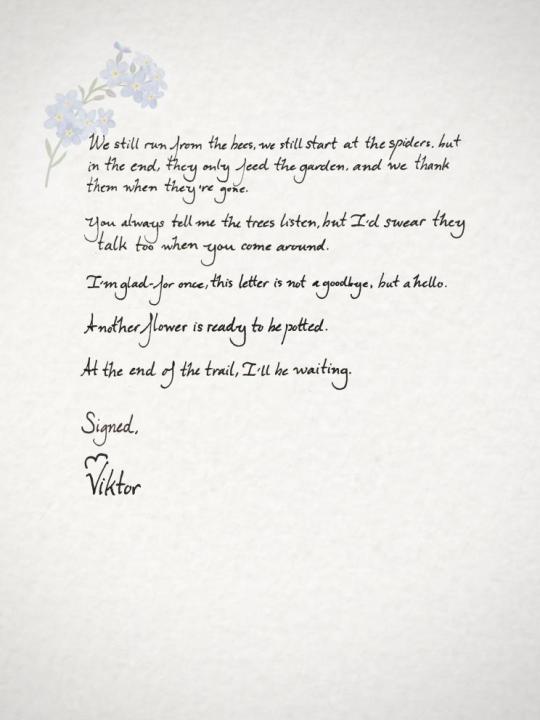 We still run from the bees, we still start at the spiders. but
in the end, they only feed the garden, and we thank
them when they're gone.
You always tell me the trees listen, but I'd swear they
talk too when you come around.
I'm glad-for once, this letter is not a goodbye, but a hello.
Another flower is ready to be potted.
At the end of the trail, I'll be waiting.
Signed,
Viktor